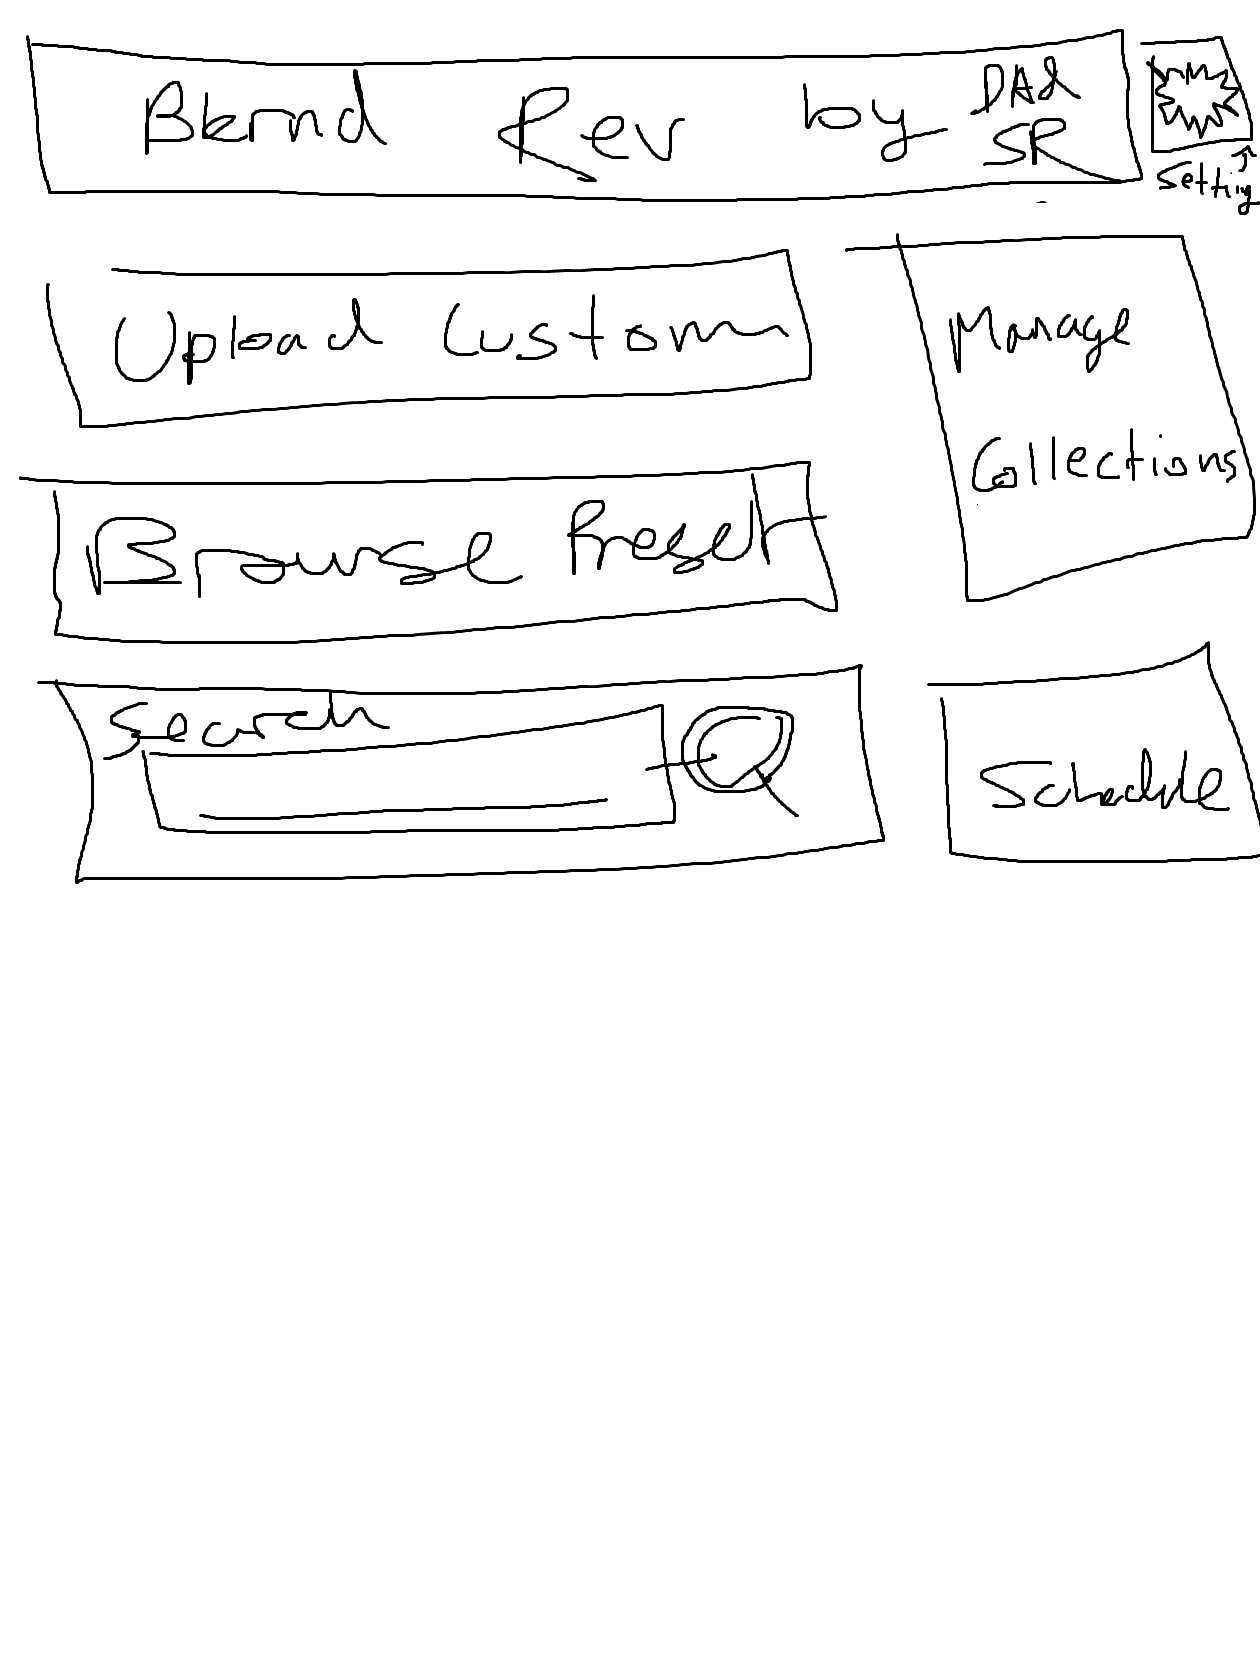 Bkrnd Rev by DA&
SR
Setting
Upload Custom
Manage
Collections
Browse Preset
Search
Schedule